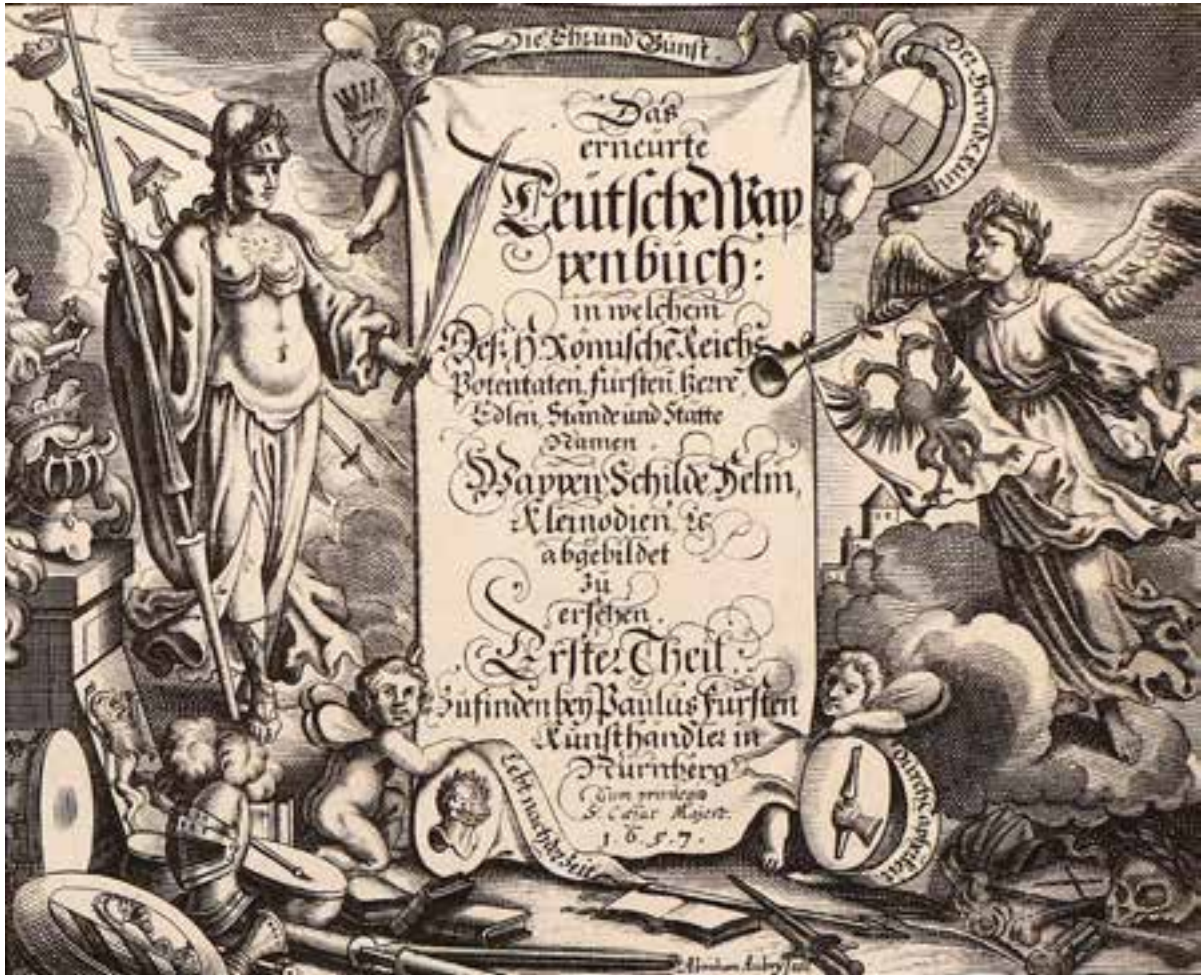 Die Ehr und Gunst.
Der Heroldskunst
Das
erneurte
Teutsche Wap
penbuch:
in welchem
Deß H. Römische Reichs
Potentaten, fürsten, herrē,
Edlen, Stände und Stätte
Namen.
Wappen, Schilde Helm,
Kleinodien, ꝛc
abgebildet
zu
ersehen.
Erster Theil.
Zufinden bey Paulus Fürsten
Kunsthändler in
Nürnberg
Cum privilegio
S. Cæsar Majest.
1.6.5.7.
Lebt nach der Zeit
Abraham Aubry fecit